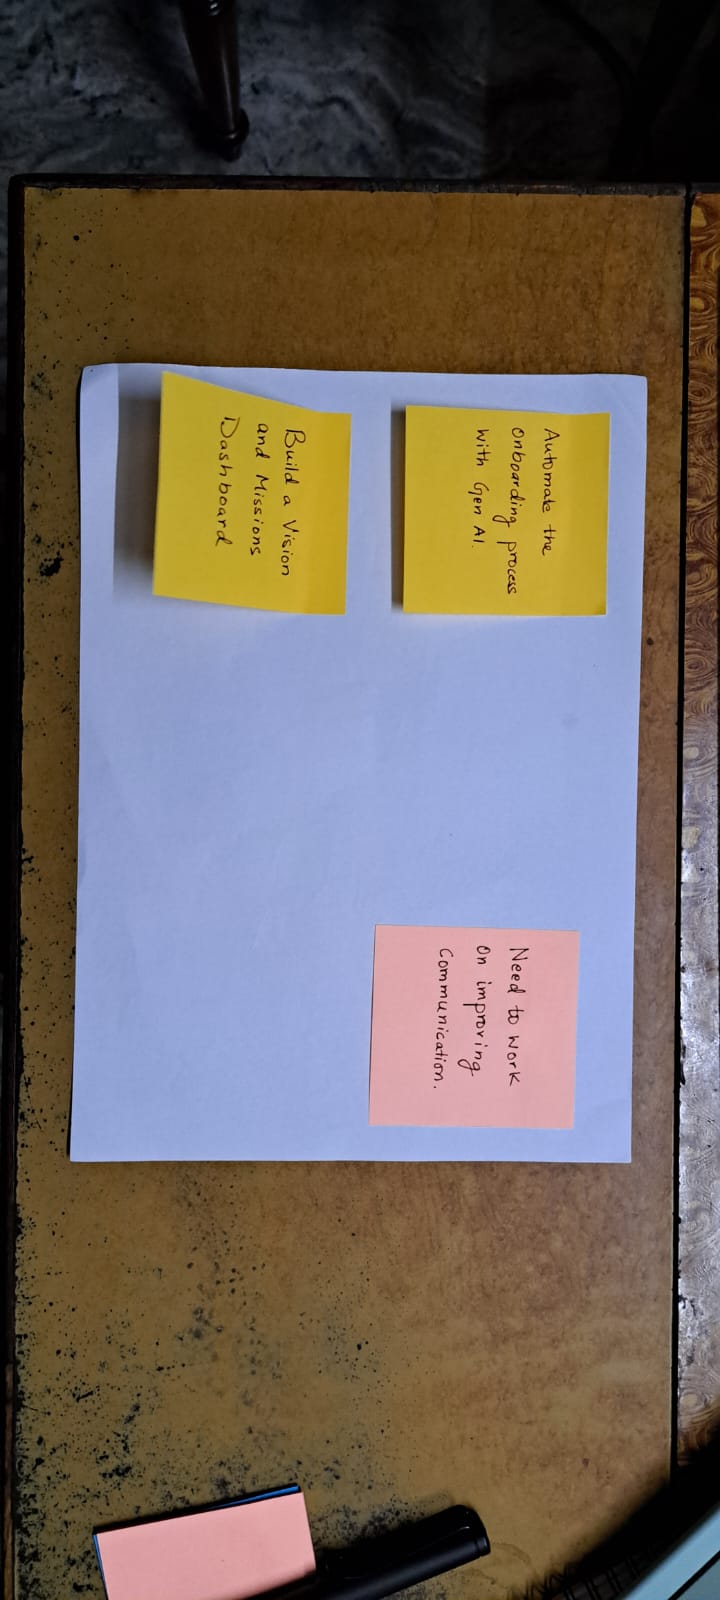 Automate the
onboarding process
with Gen AI.
Build a Vision
and Missions
Dashboard
Need to work
on improving
communication.